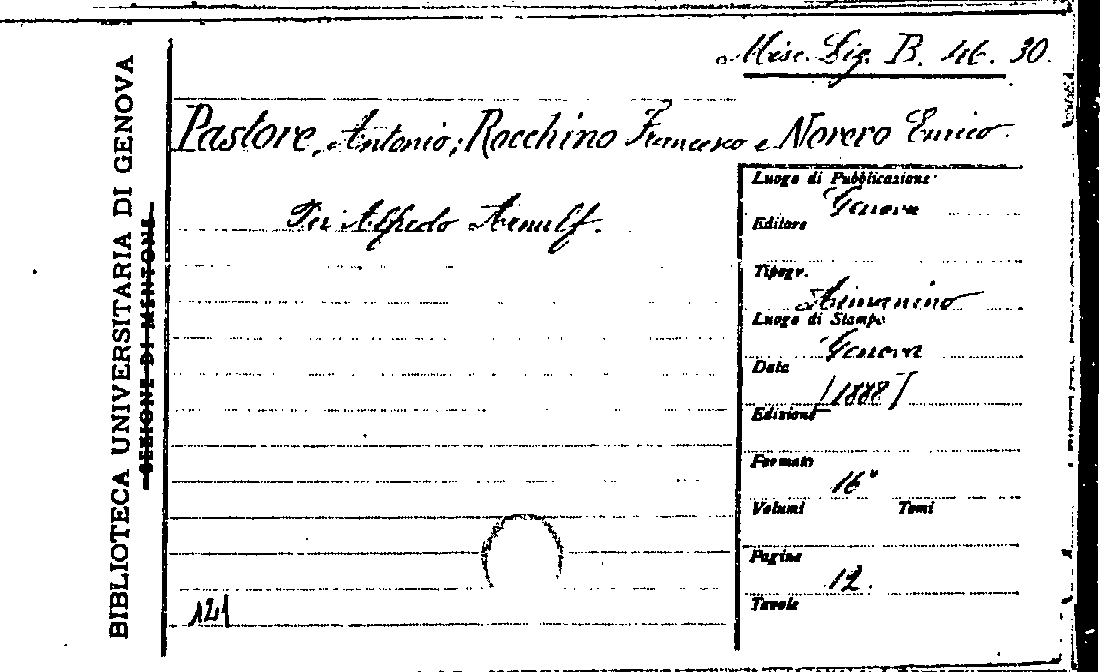 Misc. Lig. B. 46. 30.
Pastore, Antonio; Rocchino Francesco e Norero Enrico.
Per Alfredo Arnulf.
Luogo di Pubblicazione
Genova
Editore
Tipogr.
Armanino
Luogo di Stampa
Genova
Data
[1888]
Edizione
Formato
16°
Volumi Tomi
Pagine
12.
Tavole
121
BIBLIOTECA UNIVERSITARIA DI GENOVA